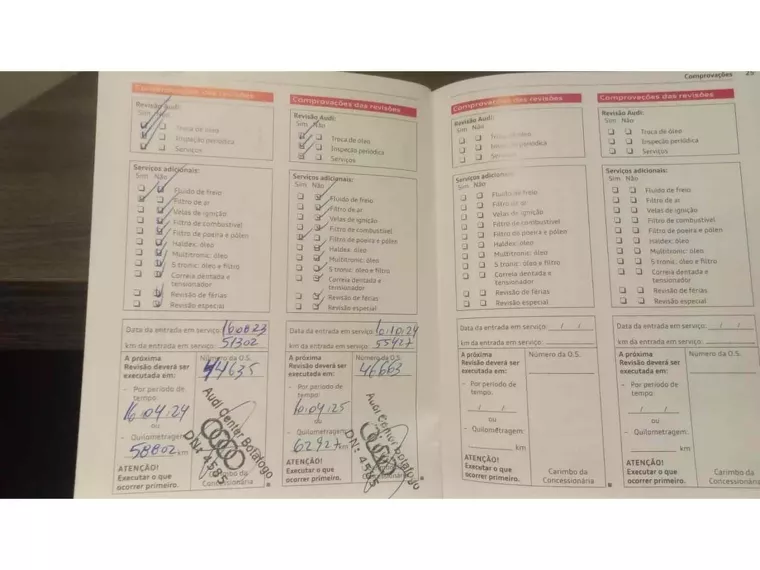 Comprovações 25
Comprovações das revisões
Revisão Audi:
Sim Não
Troca de óleo
Inspeção periódica
Serviços
Serviços adicionais:
Sim Não
Fluido de freio
Filtro de ar
Velas de ignição
Filtro de combustível
Filtro de poeira e pólen
Haldex: óleo
Multitronic: óleo
S tronic: óleo e filtro
Correia dentada e
tensionador
Revisão de férias
Revisão especial
Data da entrada em serviço: 16.08.23
km da entrada em serviço: 51302
A próxima
Revisão deverá ser
executada em:
- Por período de
tempo:
16.04.24
ou
- Quilometragem:
58802 km
ATENÇÃO!
Executar o que
ocorrer primeiro.
Número da O.S.
44635
Audi Center Botafogo
DN: 4585
Carimbo da
Concessionária
Comprovações das revisões
Revisão Audi:
Sim Não
Troca de óleo
Inspeção periódica
Serviços
Serviços adicionais:
Sim Não
Fluido de freio
Filtro de ar
Velas de ignição
Filtro de combustível
Filtro de poeira e pólen
Haldex: óleo
Multitronic: óleo
S tronic: óleo e filtro
Correia dentada e
tensionador
Revisão de férias
Revisão especial
Data da entrada em serviço: 10.10.24
km da entrada em serviço: 55427
A próxima
Revisão deverá ser
executada em:
- Por período de
tempo:
10.04.25
ou
- Quilometragem:
62927 km
ATENÇÃO!
Executar o que
ocorrer primeiro.
Número da O.S.
46663
Audi Center Botafogo
DN: 4585
Carimbo da
Concessionária
Comprovações das revisões
Revisão Audi:
Sim Não
Troca de óleo
Inspeção periódica
Serviços
Serviços adicionais:
Sim Não
Fluido de freio
Filtro de ar
Velas de ignição
Filtro de combustível
Filtro de poeira e pólen
Haldex: óleo
Multitronic: óleo
S tronic: óleo e filtro
Correia dentada e
tensionador
Revisão de férias
Revisão especial
Data da entrada em serviço: / /
km da entrada em serviço:
A próxima
Revisão deverá ser
executada em:
- Por período de
tempo:
/ /
ou
- Quilometragem:
km
ATENÇÃO!
Executar o que
ocorrer primeiro.
Número da O.S.
Carimbo da
Concessionária
Comprovações das revisões
Revisão Audi:
Sim Não
Troca de óleo
Inspeção periódica
Serviços
Serviços adicionais:
Sim Não
Fluido de freio
Filtro de ar
Velas de ignição
Filtro de combustível
Filtro de poeira e pólen
Haldex: óleo
Multitronic: óleo
S tronic: óleo e filtro
Correia dentada e
tensionador
Revisão de férias
Revisão especial
Data da entrada em serviço: / /
km da entrada em serviço:
A próxima
Revisão deverá ser
executada em:
- Por período de
tempo:
/ /
ou
- Quilometragem:
km
ATENÇÃO!
Executar o que
ocorrer primeiro.
Número da O.S.
Carimbo da
Concessionária